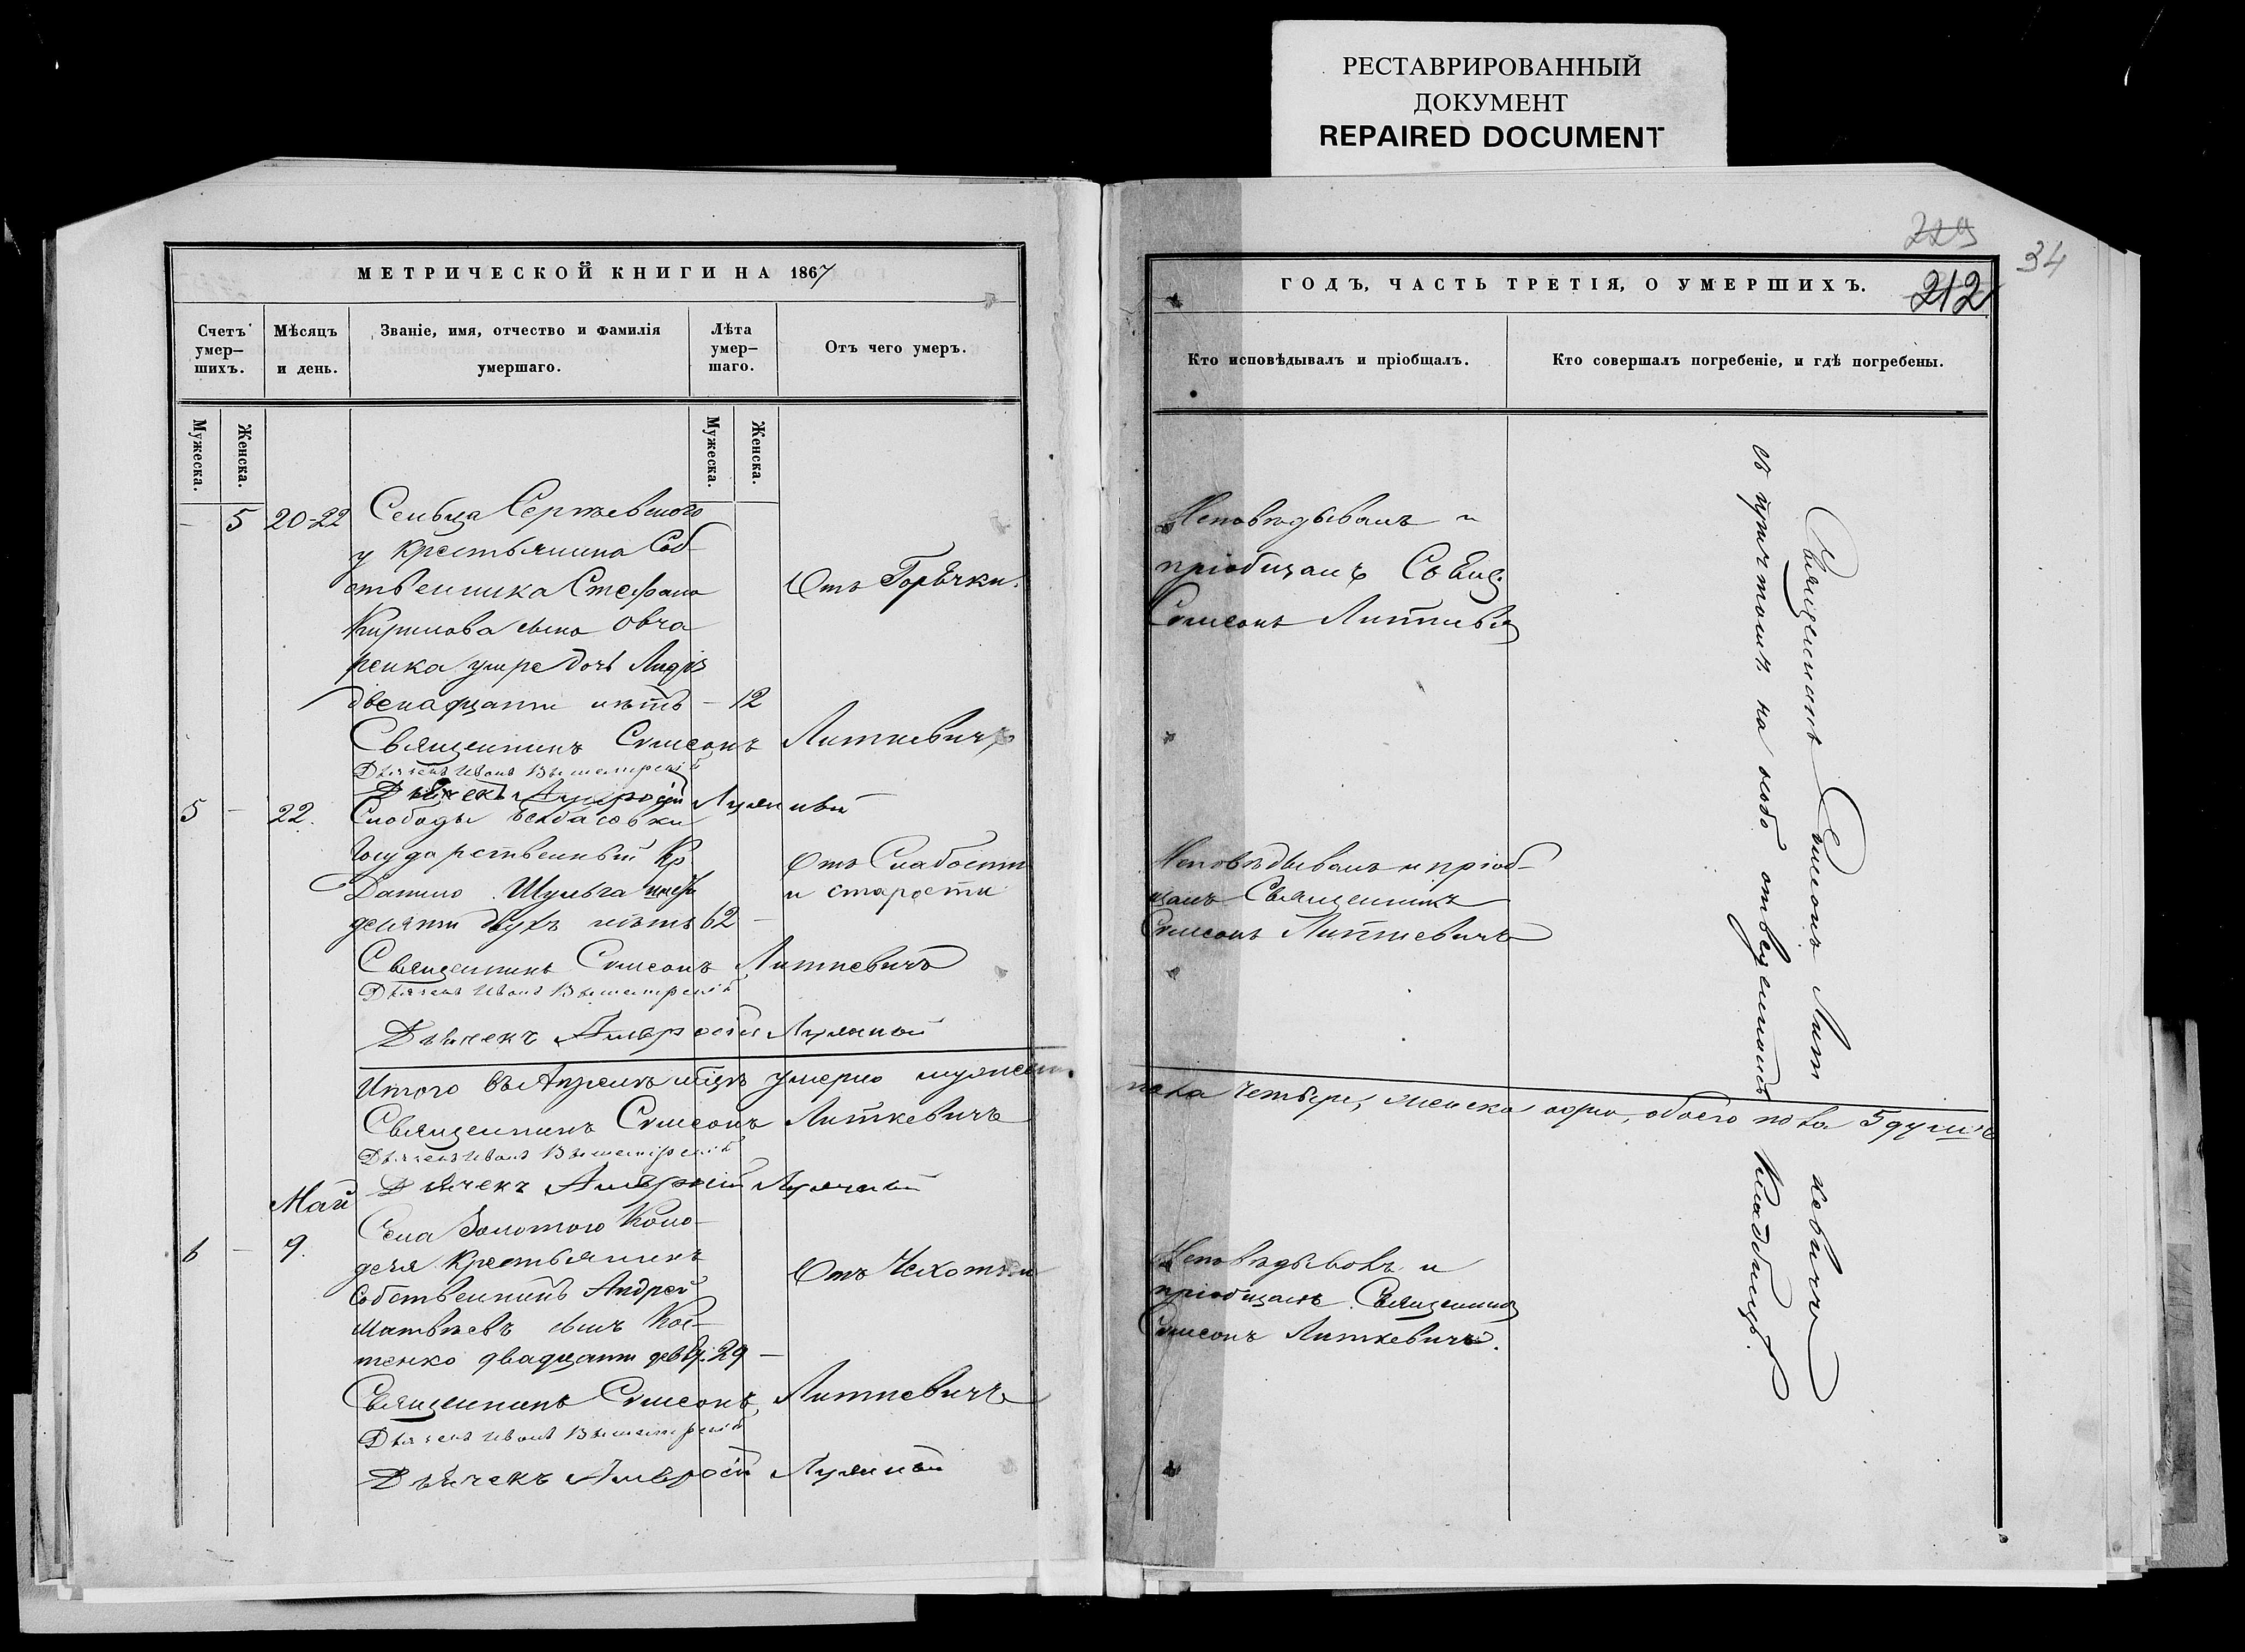 РЕСТАВРИРОВАННЫЙ
ДОКУМЕНТ
REPAIRED DOCUMENT
МЕТРИЧЕСКОЙ КНИГИ НА 1867
Счетъ умер–шихъ.
Мѣсяцъ и день.
Званіе, имя, отчество и фамилія умершаго.
Лѣта умер–шаго.
Отъ чего умеръ.
Мужеска.
Женска.
Мужеска.
Женска.
– 5 20-22 Сельца Сергѣевского
у крестьянина Соб-
ственника Стефана Отъ Горѣчки.
Кирилова сына Овча
ренка умре дочь Лидія
двенадцати лѣтъ – 12
Священникъ Симеонъ Литкевичъ
Дьячекъ Иванъ
Дьячекъ Амвросій
5 – 22. Слободы
Государственный Кр. Отъ Слабости
Данило Шульга шесть и старости
десяти двухъ лѣтъ 62 –
Священникъ Симеонъ Литкевичъ
Дьячекъ Иванъ
Дьячекъ Амвросій
Итого въ Апрелѣ мѣсяцѣ умерло мужеск.
Священникъ Симеонъ Литкевичъ
Дьячекъ Иванъ
Дьячекъ Амвросій
Май
6 – 9. Села Золотого Коло-
дезя Крестьянинъ
Собственникъ Андрей Отъ Чехотки
Матвѣевъ сынъ Кос-
тенко двадцати дев. 29 –
Священникъ Симеонъ Литкевичъ
Дьячекъ Иванъ
Дьячекъ Амвросій
229
34
212
ГОДЪ, ЧАСТЬ ТРЕТІЯ, О УМЕРШИХЪ.
Кто исповѣдывалъ и пріобщалъ.
Кто совершалъ погребеніе, и гдѣ погребены.
Исповѣдывалъ и
пріобщалъ Свящ.
Симеонъ Литкеви
Исповѣдывалъ и пріоб-
щалъ Священникъ
Симеонъ Литкевичъ
пола четверо, женска одно, обоего пола 5 душъ
Исповѣдывалъ и
пріобщалъ Священникъ
Симеонъ Литкевичъ.
Священникъ Симеонъ Литкевичъ
съ причтомъ на особо отведенномъ Кладбищѣ.